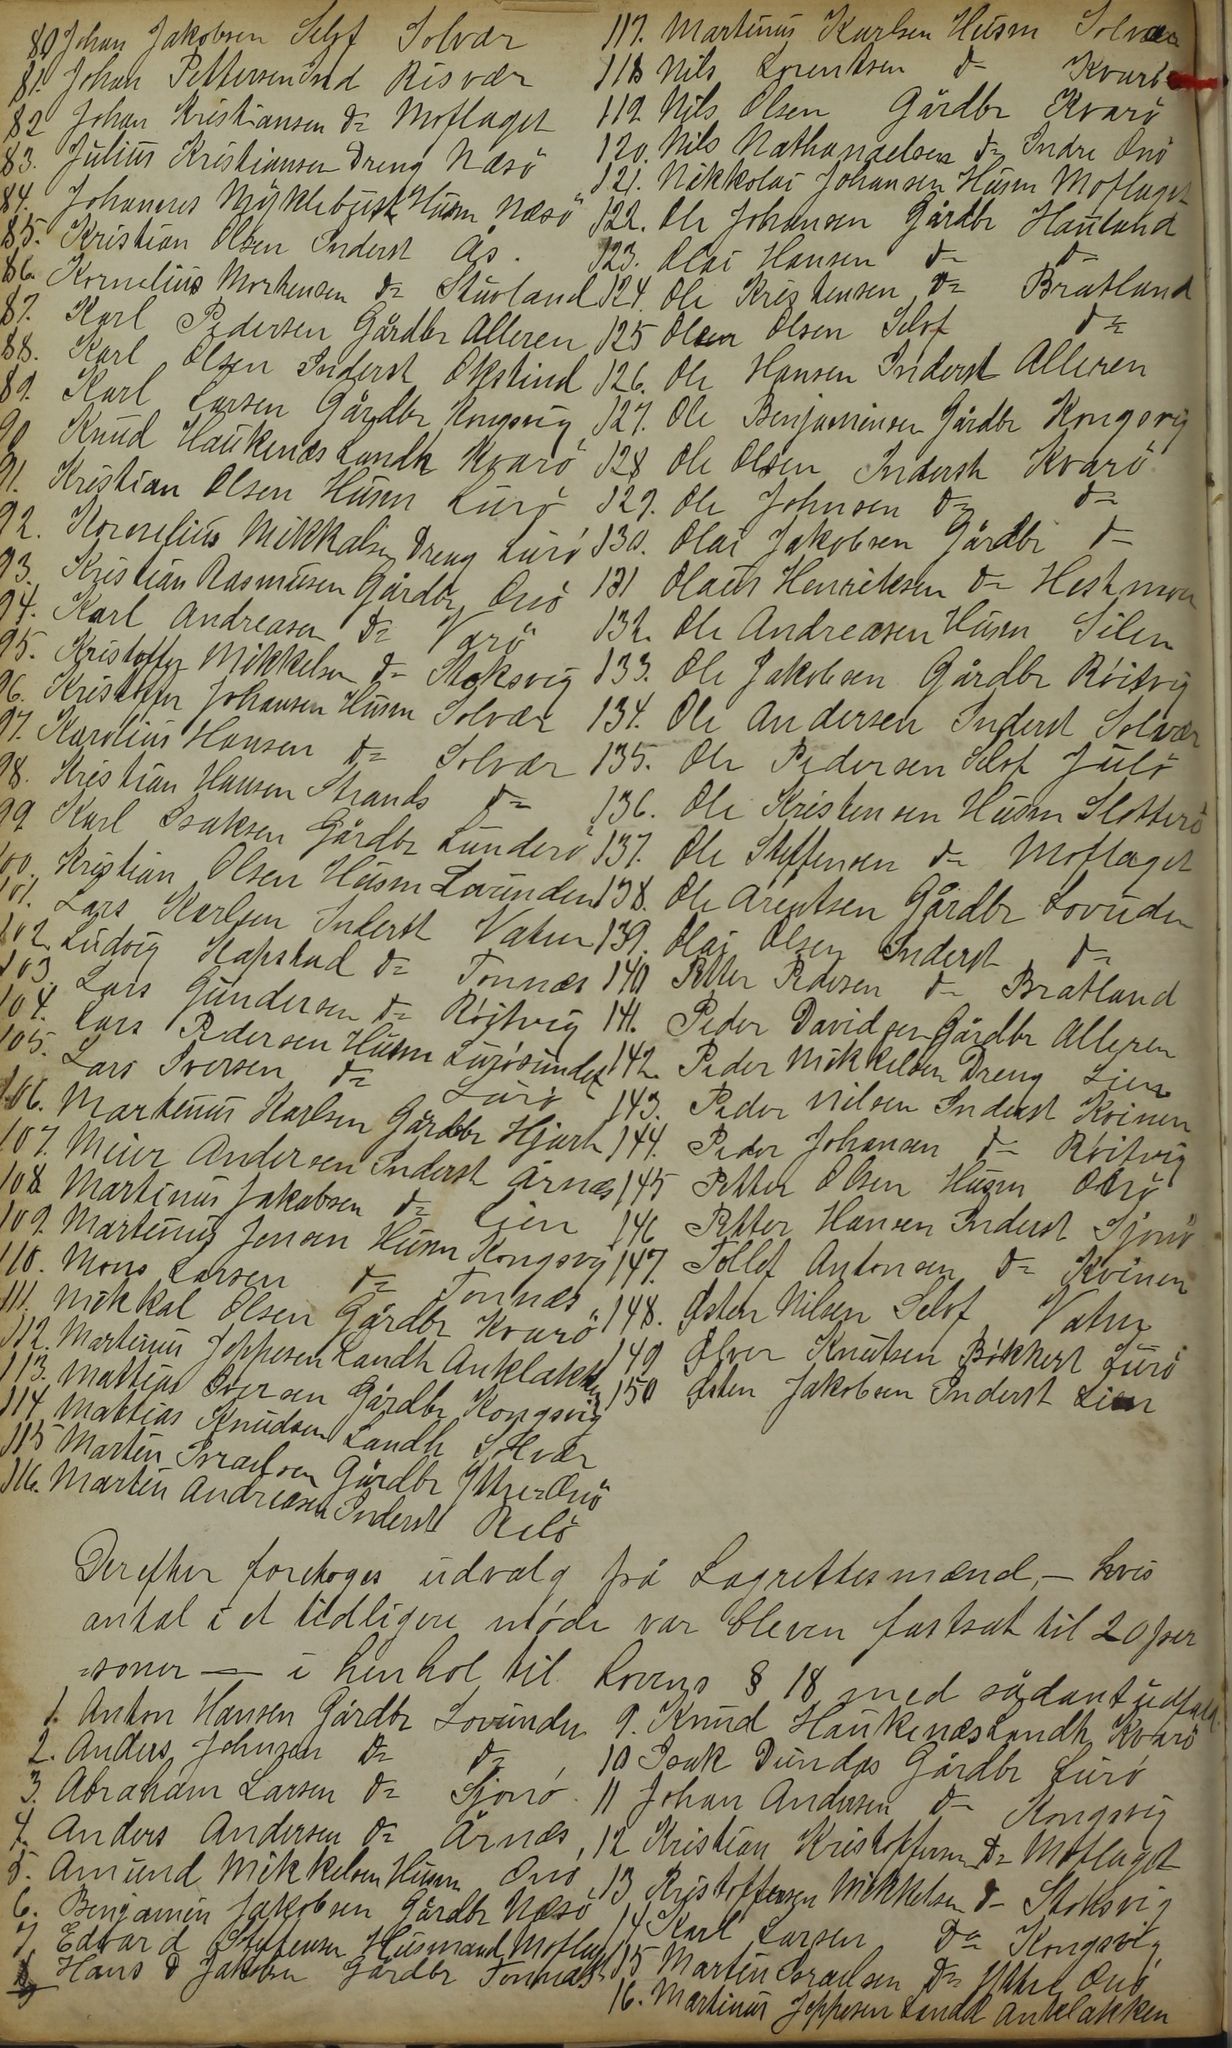 80 Johan Jakobsen Selvf Solvær
81. Johan Pettersen Ind Risvær
82 Johan Kristiansen do Moflaget
83. Julius Kristiansen Dreng Næsö
84. Johannes Myklebust Husm Næsö
85. Kristian Olsen Inderst Ås.
86. Kornelius Mortensen do Stuvland
87. Karl Pedersen Gårdbr Alleren
88. Karl Olsen Inderst Okstind
89. Karl Larsen Gårdbr Kongsvig
90 Knud Haukenæs Landh Kvarö
91. Kristian Olsen Husm Lurö
92. Kornelius Mikkalsen Dreng Lurö
93. Kristian Rasmusen Gårdbr Onö
94. Karl Andreasen do Varö
95. Kristoffer Mikkelsen do Stoksvig
96. Kristoffer Johansen Husm Solvær
97. Karolius Hansen do Solvær
98. Kristian Hansen Strands do
99 Karl Isaksen Gårdbr Lunderö
100. Kristian Olsen Husm Lovunden
101. Lars Karlsen Inderst Vatne
102. Ludvig Hapstad do Tonnæs
103. Lars Gundersen do Röitvig
104. Lars Pedersen Husm Lurösundet
105. Lars Iversen do Lurö
106. Martinus Karlsen Gårdbr Hjart
107. Meier Andersen Inderst Årnæs
108 Martinus Jakobsen do Lien
109. Martinus Jensen Husm Kongsvig
110. Mons Larsen do Tonnæs
111. Mikkal Olsen Gårdbr Kvarö
112. Martinus Jeppesen Landh Anklakken
113. Mattias Iversen Gårdbr Kongsvig
114 Mattias Knudsen Landh Selvær
115 Martin Israelsen Gårdbr Ytre Onö
116. Martin Andreasen Inderst Relö
117. Martinus Karlsen Husm Solvær
118 Nils Lorentsen do Kvarö
119 Nils Olsen Gårdbr Kvarö
120. Nils Nathanaelsen do Indre Onö
121. Nikkolai Johansen Husm Moflaget
122. Ole Johansen Gårdbr Hauland
123. Olai Hansen do do
124. Ole Kristensen do Bratland
125 Olsen Olsen Selvf do
126. Ole Hansen Inderst Alleren
127. Ole Benjaminsen Gårdbr Kongsvig
128 Ole Olsen Inderst Kvarö
129. Ole Johnsen do do
130. Olai Jakobsen Gårdbr do
131 Olaus Henriksen do Hestmon
132. Ole Andreasen Husm Silen
133. Ole Jakobsen Gårdbr Röitvig
134. Ole Andersen Inderst Solvær
135. Ole Pedersen Selvf Julö
136. Ole Kristensen Husm Slotterö
137. Ole Steffensen do Moflaget
138. Ole Arentsen Gårdbr Lovunden
139. Olai Olsen Inderst do
140 Petter Pedersen do Bratland
141. Peder Davidsen Gårdbr Alleren
142. Peder Mikkelsen Dreng Lien
143. Peder Nilsen Inderst Kvinen
144. Peder Johansen do Röitvig
145 Petter Olsen Husm Onö
146 Petter Hansen Inderst Sjonö
147. Tollef Antonsen do Kvinen
148. Østen Nilsen Selvf Vatne
149 Ølver Knutsen Bökkert Lurö
150 Østen Jakobsen Inderst Lien
Derefter foretoges udvalg på Lagrettesmænd, – hvis
antal i et tidligere möde var bleven fastsat til 20 per
=soner – i henhol til Lovens § 18 med sådant udfald.
1. Anton Hansen Gårdbr Lovunden
2. Anders Johnsen do do
3. Abraham Larsen do Sjonö.
4. Anders Andersen do Årnæs,
5. Amund Mikkelsen Husm Onö
6. Benjamin Jakobsen Gårdbr Næsö
7 Edvard Steffensen Husmand Moflaget
8 Hans D Jakobsen Gårdbr Tonnæs
9. Knud Haukenæs Landh Kvarö
10 Isak Dundas Gårdbr Lurö
11 Johan Andersen do Kongsvig
12 Kristian Kristoffersen do Moflaget
13 Kristoffersen Mikkelsen do Stoksvig
14 Karl Larsen do Kongsvig
15 Martin Israelsen do Ytre Onö
16. Martinus Jeppesen Landh Anklakken